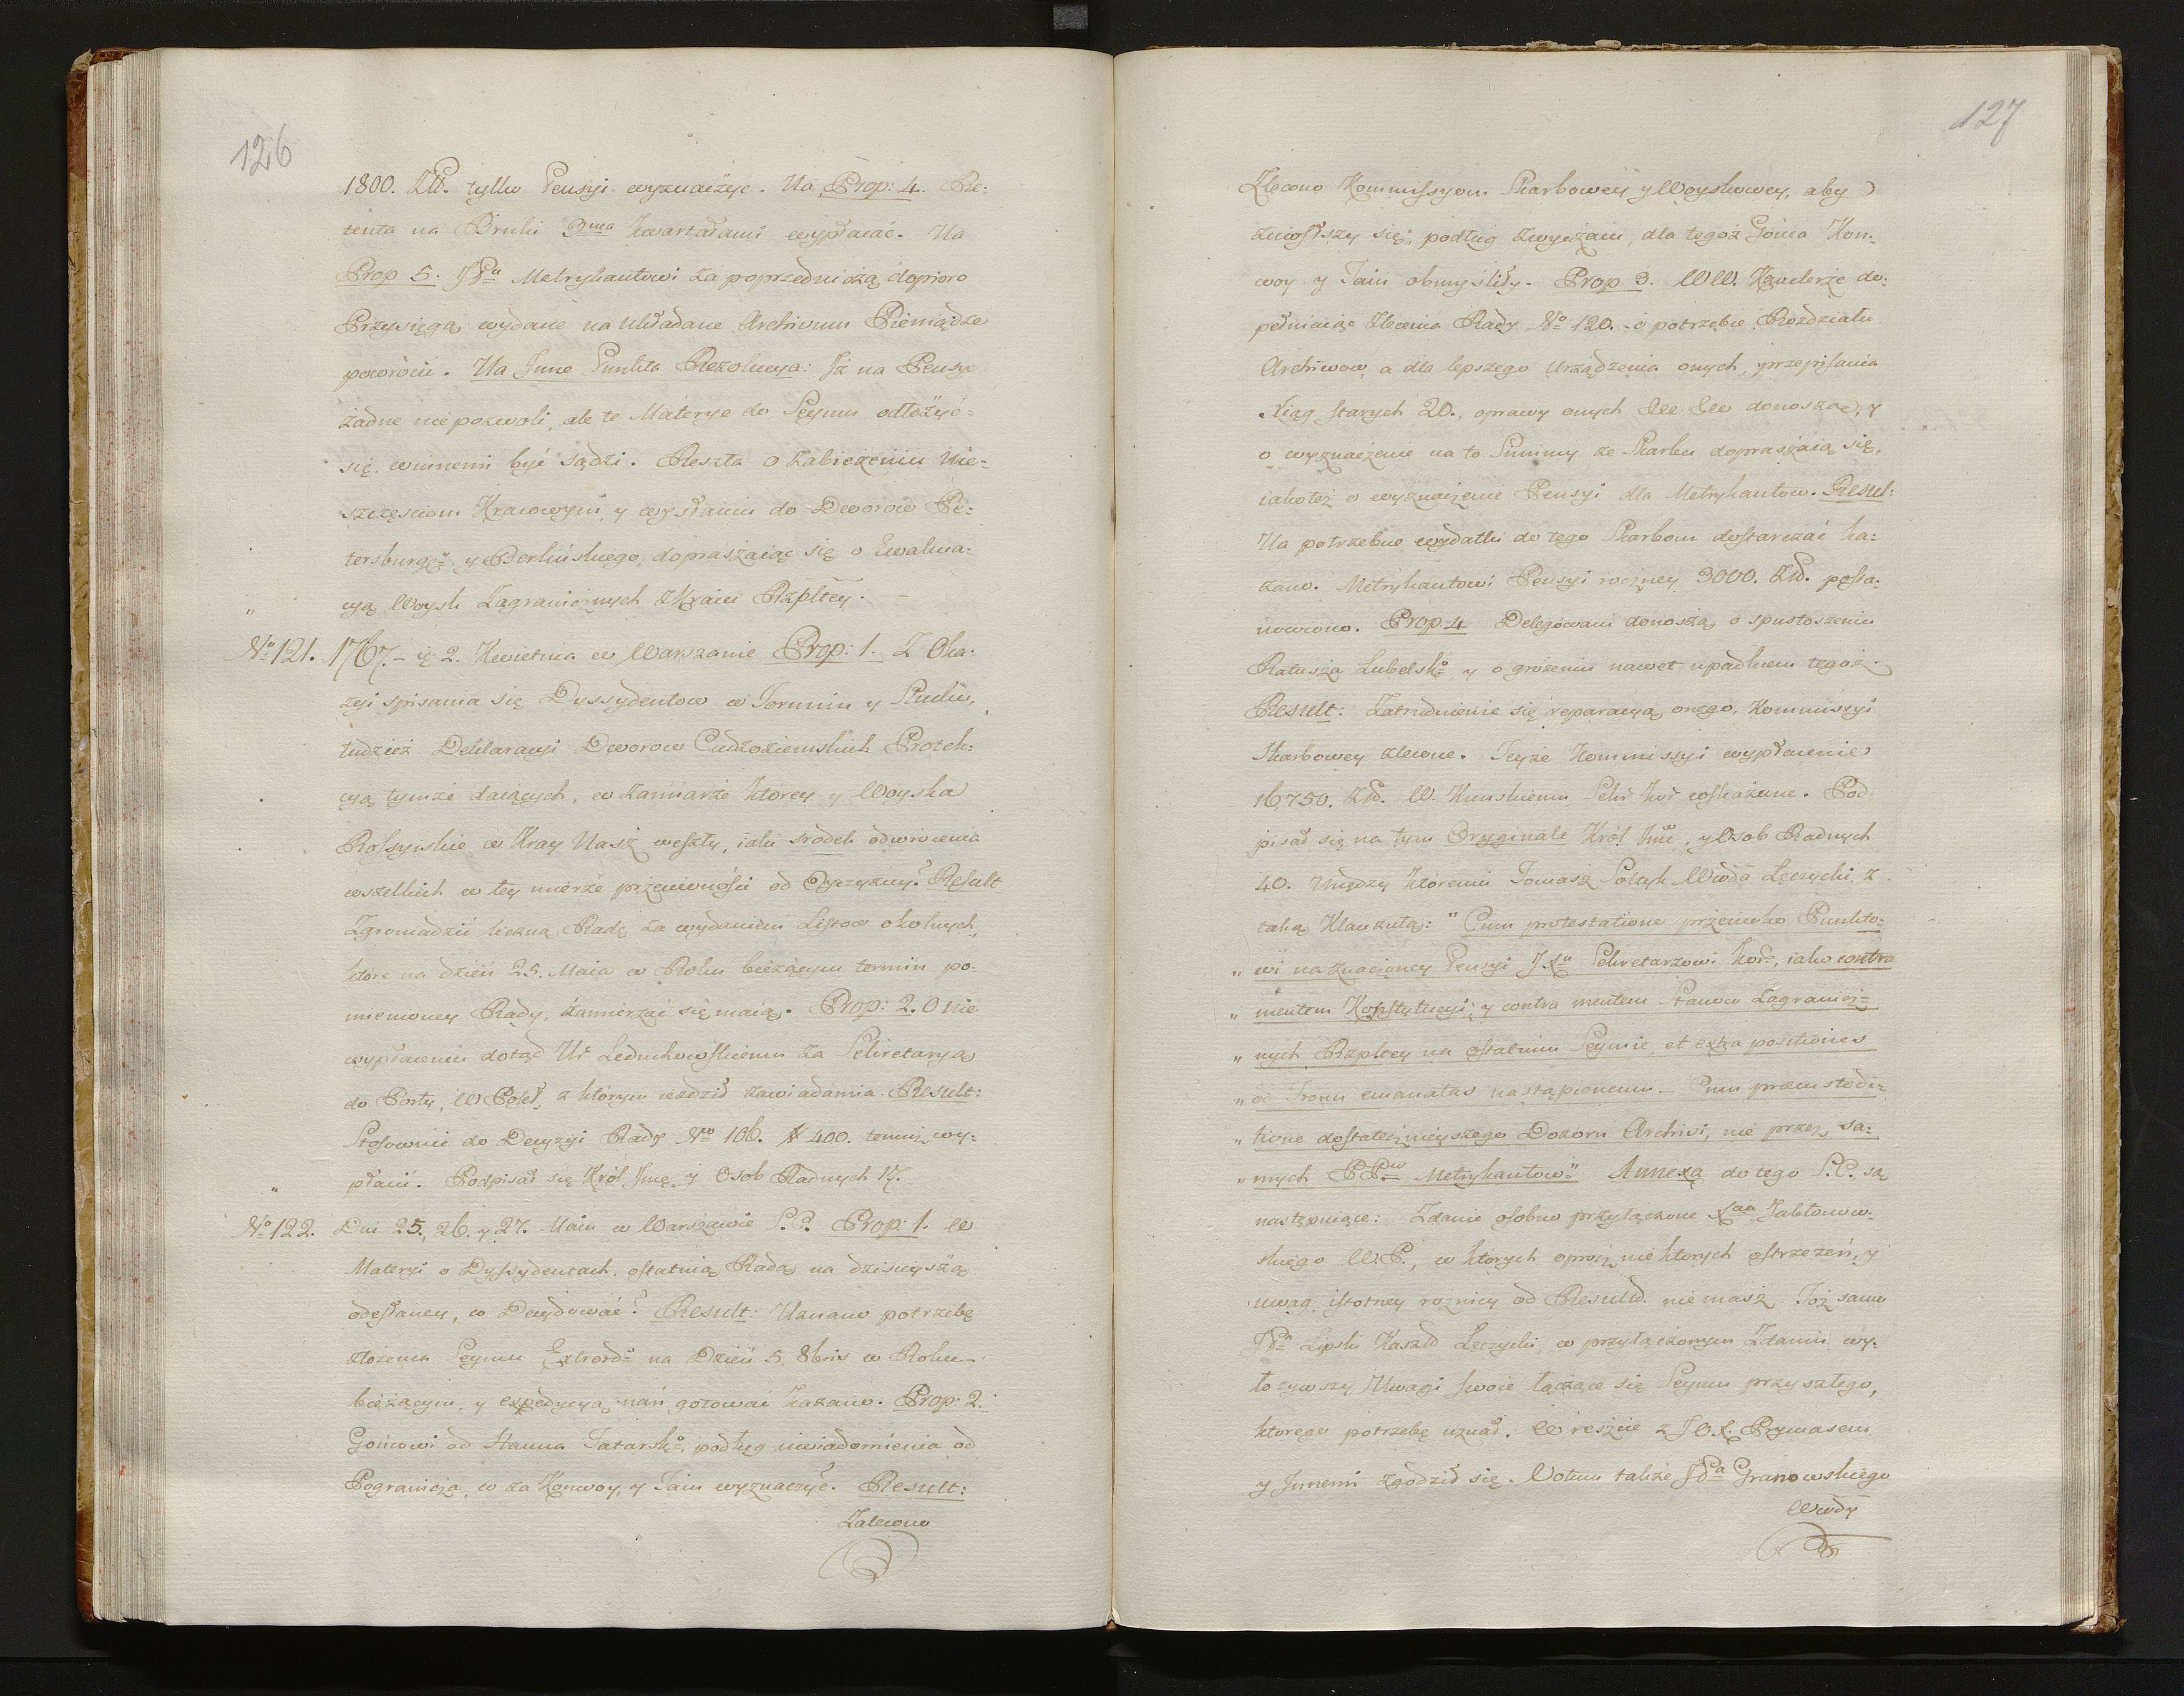 126
1800. Złł. tylko Pensyi wyznaczyć. Na Prop: 4. Re:
tenta na Bruki 3ma Kwartałami wypłacać. Na
Prop 5. JPu Metrykantowi za poprzedniczą dopioro
Przysięgą wydane na układane Archivum Pieniądze
powrócić. Na Jnne Punkta Rezolucya: Jż na Pensye
żadne nie pozwoli, ale te Materye do Seymu odłożyć=
się winnemi być sądzi. Reszta o zabieżeniu Nie=
szczęściom Kraiowym, y wysłaniu do Dworow Pe:
tersburgo. y Berlińskiego, dopraszaiąc się o Ewakua:
cyą Woysk Zagranicznych z Kraiu Rzpltey.
No 121. 1767. – 2. Kwietnia w Warszawie Prop: 1. Z Oka:
zyi spisania się Dyssydentow w Toruniu y Słucku,
tudzież Deklaracyi Dworow Cudzoziemskich Protek:
cyą tymże daiących, w zamiarze ktorey y Woyska
Rossyiskie w Kray Nasz weszły, iaki srodek odwrocenia
wszelkich w tey mierze przeciwności od Oyczyzny? Result
Zgromadzić liczną Radę za wydaniem Listow okolnych,
ktore na dzień 25. Maia w Roku bieżącym termin po:
mienioney Rady, zamierzać się maią. Prop: 2. O nie
wypłaceniu dotąd Ur Leduchowskiemu za Sekretaryą
do Porty, W Poseł, z którym ieździł zawiadamia. Result:
Stosownie do Decyzyi Rady No 106. # 400. temuż wy:
płacić. Podpisał się Król Jmć, y Osob Radnych 17.
No 122. Dni 25, 26. y 27. Maia w Warszawie S.C. Prop: 1. W
Materyi o Dyssydentach, ostatnią Radą na dzisieyszą
odesłaney, co Decydować? Result: Uznano potrzebę
złożenia Seymu Extrordo na Dzień 5. 8bris w Roku
bieżącym, y expedycyą nań gotować kazano. Prop: 2.
Gońcowi od Hanna Tatarsko, podług uwiadomienia od
Pogranicza, co za Konwoy, y Jaiu wyznaczyć. Result:
Zalecono
127
Zlecono Kommissyom Skarbowey y Woyskowey, aby
zniosłszy się, podług zwyczaiu, dla tegoż Gońca Kon:
woy y Jaiu obmyśliły. Prop 3. WW. Kanclerze do:
pełniaiąc Zlecenia Rady No 120. o potrzebie Rozdziału
Archiwow, a dla lepszego urządzenia onych, przepisania
Xiąg starych 20., oprawy onych &c &c donoszą, y
o wyznaczenie na to Summy ze Skarbu dopraszaią się,
iako też o wyznaczenie Pensyi dla Metrykantow. Resul:
Na potrzebne wydatki do tego Skarbom dostarczać ka:
zano. Metrykantowi Pensyi roczney 3000. Złł. posta:
nowiono. Prop 4 Delegowani donoszą o spustoszeniu
Ratusza Lubelsko y o grożeniu nawet upadkiem tegoż.
Result: Zatrudnienie się reparacyą onego, Kommissyi
Skarbowey zlecone. Teyże Kommissyi wypłacenie
16750. Złł. W. Kunskiemu Sekr Kor wskazane. Pod
pisał się na tym Oryginale Król Jmć, y Osob Radnych
40. między któremi Tomasz Sołtyk Wwda Łęczycki, z
taką Klauzulą: "Cum protestatione przeciwko Punkto:
„ wi naznaczoney Pensyi JXu Sekretarzowi Kor, iako contra
„ mentem Konstytucyi, y contra mentem Stanow Zagranicz=
„ nych Rzpltey na ostatnim Seymie et extra positiones
„ od Tronu emanatas nastąpionemu. – Cum praecustodi=
„ tione dostatecznieyszego Dozoru Archivi, nie przez sa=
„ mych PPw Metrykantow." Annexa do tego S.C. są
następuiące: Zdanie osobno przyłączone Xcia Jabłonow=
skiego W.P., w ktorych oprocz niektorych ostrzeżeń, y
uwag, istotney roznicy od Resultt. nie masz. Toż samo
JPn Lipski Kasztl Łęczycki, w przyłączonym Zdaniu wy:
łożywszy Uwagi swoie tączące się Seymu przyszłego,
ktorego potrzebę uznał. W reszcie z J.O.X. Prymasem
y Jnnemi zgodził się. Votum także JPa Granowskiego
Wwdy